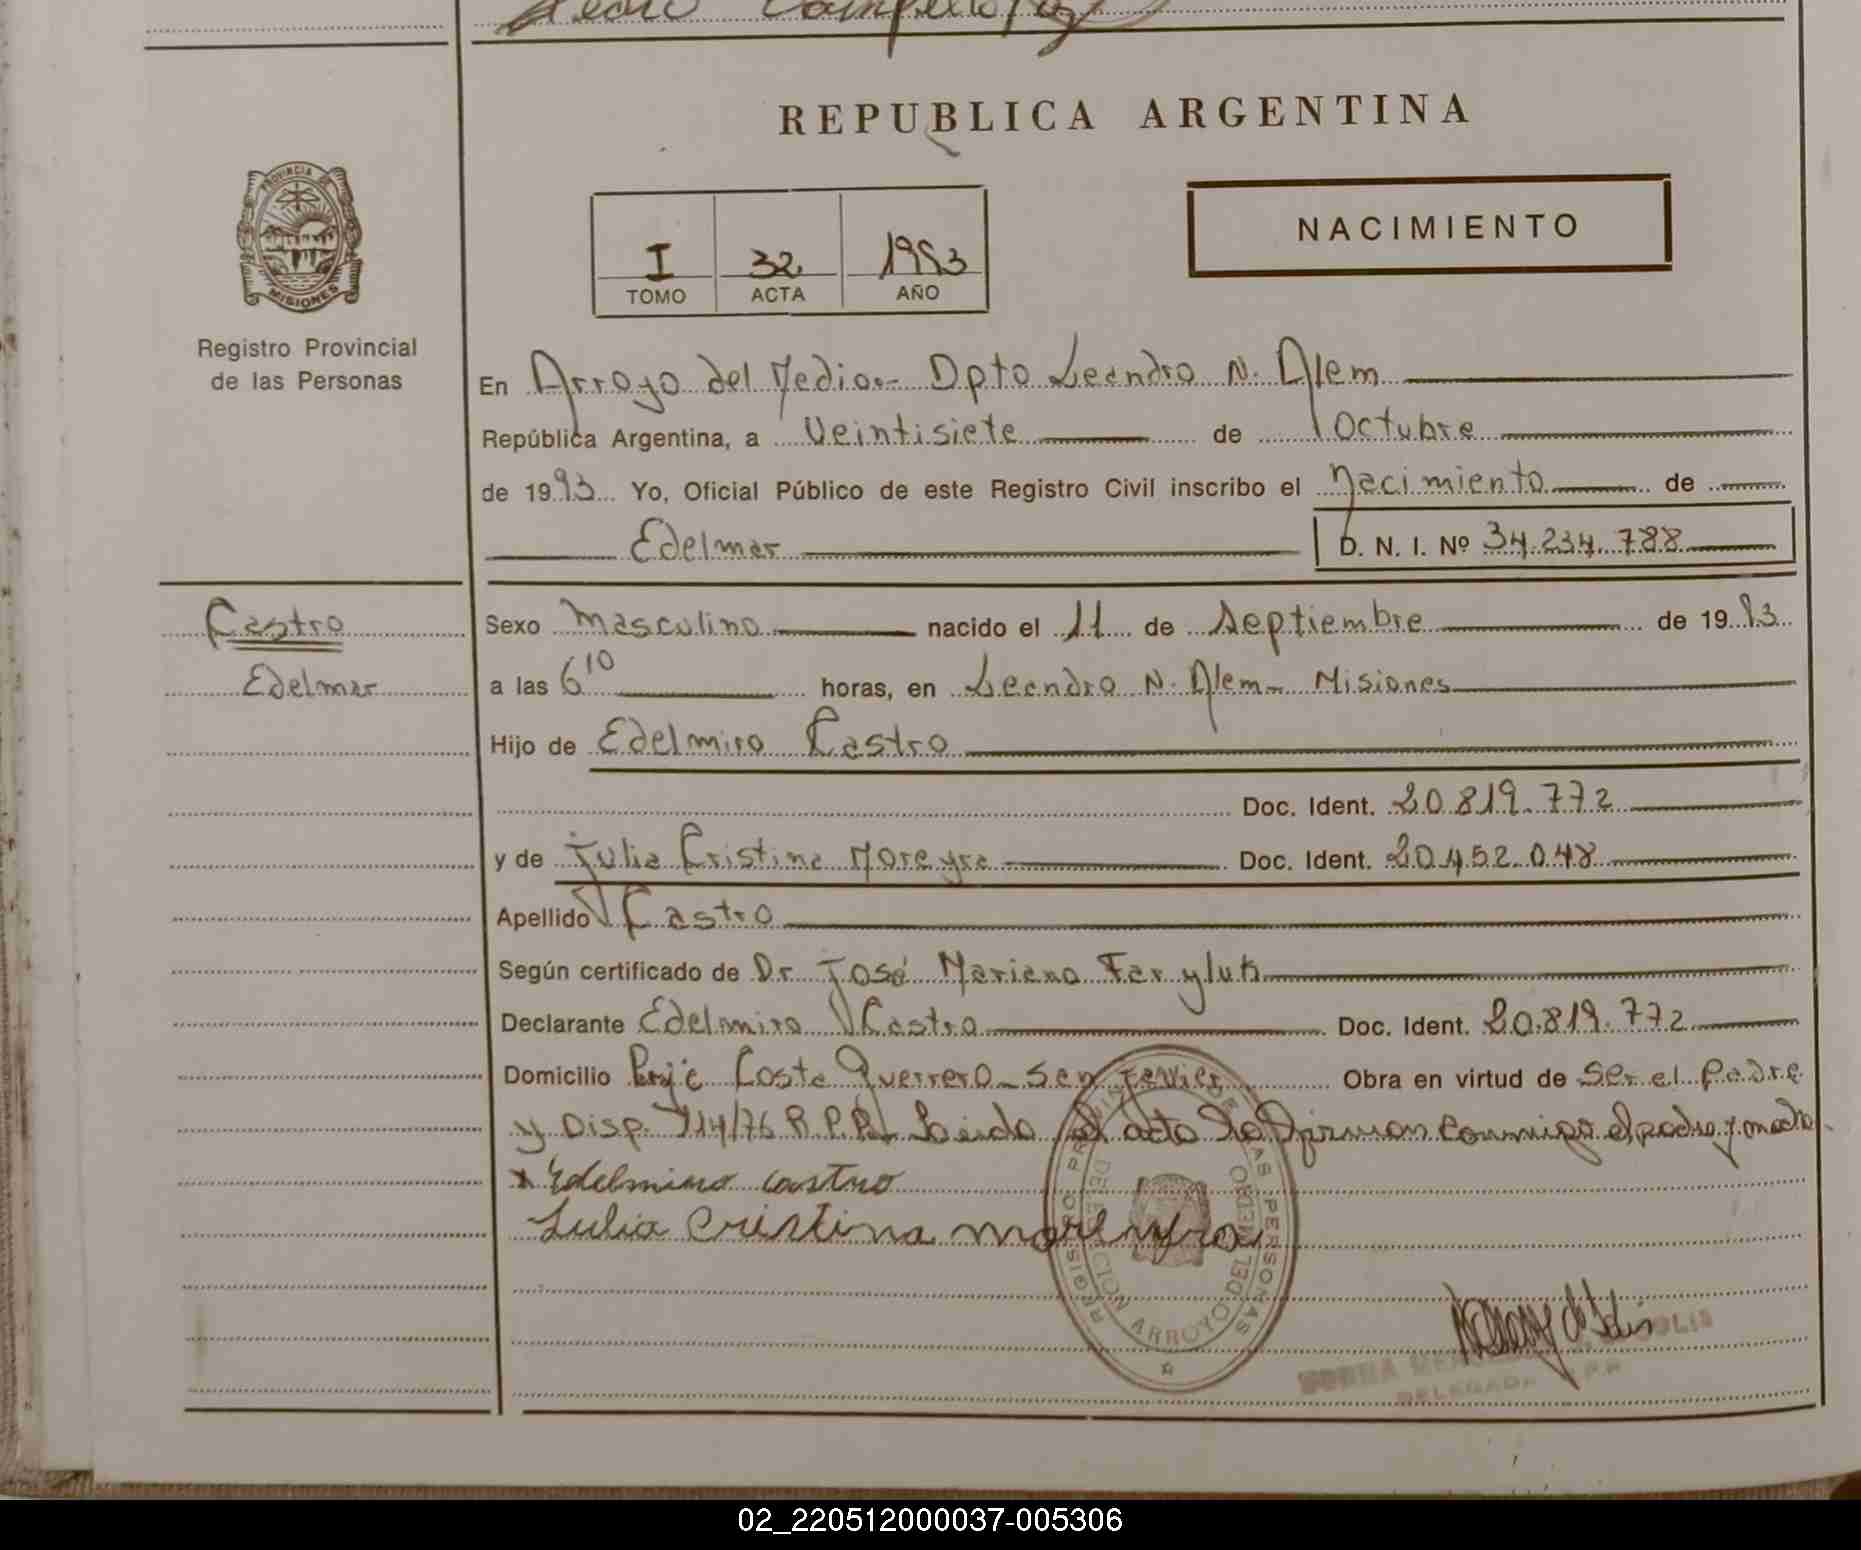 Pedro
REPUBLICA ARGENTINA
PROVINCIA DE
MISIONES
Registro Provincial
de las Personas
NACIMIENTO
I 32 1993
TOMO ACTA AÑO
En Arroyo del Medio.- Dpto Leandro N. Alem
República Argentina, a Veintisiete de Octubre
de 1993 Yo, Oficial Público de este Registro Civil inscribo el Nacimiento de
Edelmar D. N. I. Nº 34.234.788
Castro
Edelmar
Sexo Masculino nacido el 11 de Septiembre de 1993
a las 6 10 horas, en Leandro N. Alem- Misiones
Hijo de Edelmiro Castro
Doc. Ident. 20.819.772
y de Julia Cristina Moreyra Doc. Ident. 20.452.048
Apellido Castro
Según certificado de Dr José Mariano
Declarante Edelmiro Castro Doc. Ident. 20.819.772
Domicilio Pje Costa Guerrero - San Javier Obra en virtud de ser el Padre
y Disp. 714/76 R.P.P. Leida el acta la firman conmigo el padre y madre
x Edelmiro castro
Julia Cristina moreyra
REGISTRO PROVINCIAL DE LAS PERSONAS
DELEGACION ARROYO DEL MEDIO
DELEGADA R.P.P.
02_220512000037-005306